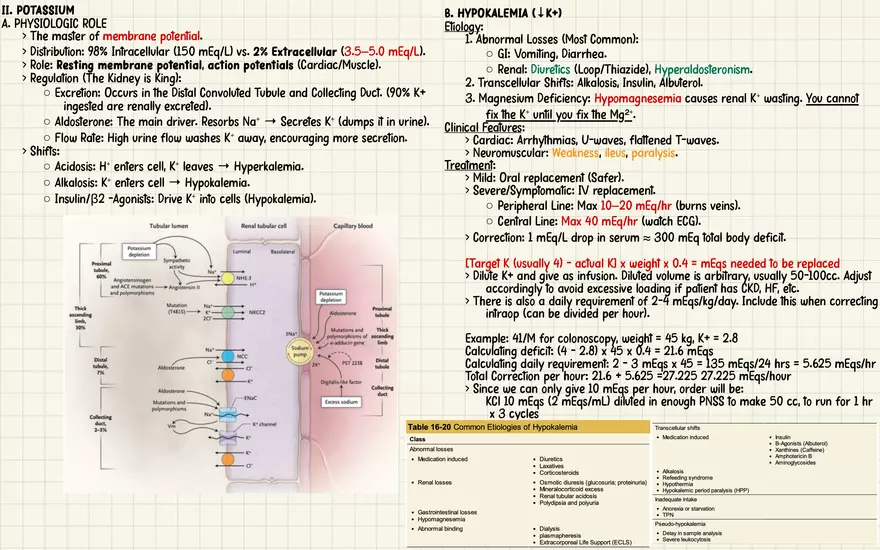 II. POTASSIUM
A. PHYSIOLOGIC ROLE
> The master of membrane potential.
> Distribution: 98% Intracellular (150 mEq/L) vs. 2% Extracellular (3.5–5.0 mEq/L).
> Role: Resting membrane potential, action potentials (Cardiac/Muscle).
> Regulation (The Kidney is King):
○ Excretion: Occurs in the Distal Convoluted Tubule and Collecting Duct. (90% K+
ingested are renally excreted).
○ Aldosterone: The main driver. Resorbs Na⁺ → Secretes K⁺ (dumps it in urine).
○ Flow Rate: High urine flow washes K⁺ away, encouraging more secretion.
> Shifts:
○ Acidosis: H⁺ enters cell, K⁺ leaves → Hyperkalemia.
○ Alkalosis: K⁺ enters cell → Hypokalemia.
○ Insulin/β2 -Agonists: Drive K⁺ into cells (Hypokalemia).
Tubular lumen
Renal tubular cell
Capillary blood
Potassium
depletion
Luminal
Basolateral
Proximal
tubule,
60%
Sympathetic
activity
Na⁺
NHE-3
H⁺
Angiotensinogen
and ACE mutations
and polymorphisms
Angiotensin II
Mutation
(T481S)
Na⁺
K⁺
2Cl⁻
NKCC2
Thick
ascending
limb,
30%
Na⁺
NCC
Cl⁻
K⁺
Distal
tubule,
7%
Aldosterone
Aldosterone
Mutations and
polymorphisms
ENaC
Na⁺
K⁺ channel
Vm
K⁺
Collecting
duct,
2–3%
K⁺
Cl⁻
Potassium
depletion
Aldosterone
3Na⁺
Sodium
pump
2K⁺
Mutations and
polymorphisms of
α-adducin gene
PST 2238
Digitalis-like factor
Excess sodium
Proximal
tubule
Thick
ascending
limb
Distal
tubule
Collecting
duct
B. HYPOKALEMIA (↓K+)
Etiology:
1. Abnormal Losses (Most Common):
○ GI: Vomiting, Diarrhea.
○ Renal: Diuretics (Loop/Thiazide), Hyperaldosteronism.
2. Transcellular Shifts: Alkalosis, Insulin, Albuterol.
3. Magnesium Deficiency: Hypomagnesemia causes renal K⁺ wasting. You cannot
fix the K⁺ until you fix the Mg²⁺.
Clinical Features:
> Cardiac: Arrhythmias, U-waves, flattened T-waves.
> Neuromuscular: Weakness, ileus, paralysis.
Treatment:
> Mild: Oral replacement (Safer).
> Severe/Symptomatic: IV replacement.
○ Peripheral Line: Max 10–20 mEq/hr (burns veins).
○ Central Line: Max 40 mEq/hr (watch ECG).
> Correction: 1 mEq/L drop in serum ≈ 300 mEq total body deficit.
[Target K (usually 4) - actual K] x weight x 0.4 = mEqs needed to be replaced
> Dilute K+ and give as infusion. Diluted volume is arbitrary, usually 50-100cc. Adjust
accordingly to avoid excessive loading if patient has CKD, HF, etc.
> There is also a daily requirement of 2-4 mEqs/kg/day. Include this when correcting
intraop (can be divided per hour).
Example: 41/M for colonoscopy, weight = 45 kg, K+ = 2.8
Calculating deficit: (4 - 2.8) x 45 x 0.4 = 21.6 mEqs
Calculating daily requirement: 2 - 3 mEqs x 45 = 135 mEqs/24 hrs = 5.625 mEqs/hr
Total Correction per hour: 21.6 + 5.625 =27.225 27.225 mEqs/hour
> Since we can only give 10 mEqs per hour, order will be:
KCl 10 mEqs (2 mEqs/mL) diluted in enough PNSS to make 50 cc, to run for 1 hr
x 3 cycles
Table 16-20 Common Etiologies of Hypokalemia
Class
Abnormal losses
• Medication induced
• Diuretics
• Laxatives
• Corticosteroids
• Renal losses
• Osmotic diuresis (glucosuria; proteinuria)
• Mineralocorticoid excess
• Renal tubular acidosis
• Polydipsia and polyuria
• Gastrointestinal losses
• Hypomagnesemia
• Abnormal binding
• Dialysis
• plasmapheresis
• Extracorporeal Life Support (ECLS)
Transcellular shifts
• Medication induced
• Insulin
• B-Agonists (Albuterol)
• Xanthines (Caffeine)
• Amphotericin B
• Aminoglycosides
• Alkalosis
• Refeeding syndrome
• Hypothermia
• Hypokalemic period paralysis (HPP)
Inadequate intake
• Anorexia or starvation
• TPN
Pseudo-hypokalemia
• Delay in sample analysis
• Severe leukocytosis